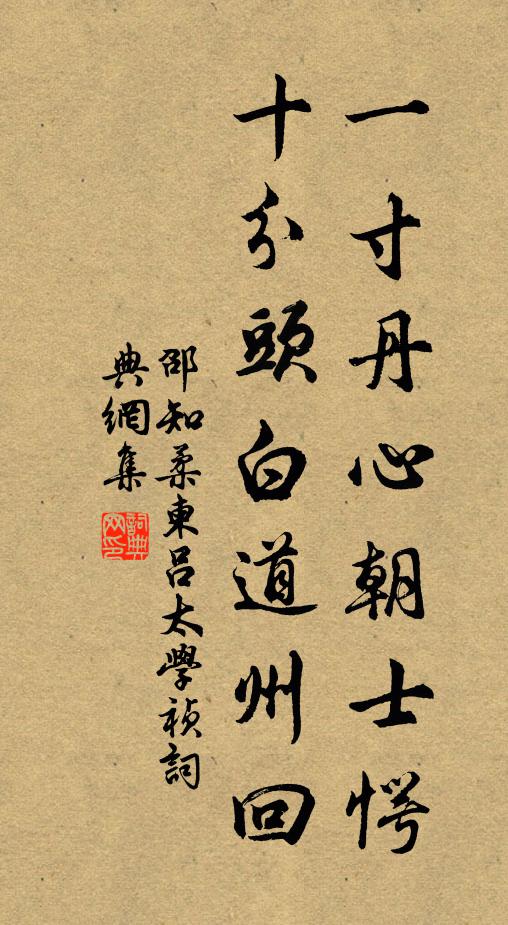 一寸丹心朝士愕
十分頭白道州回
邵知柔東呂太學禎詞
典網集
詞典
网印